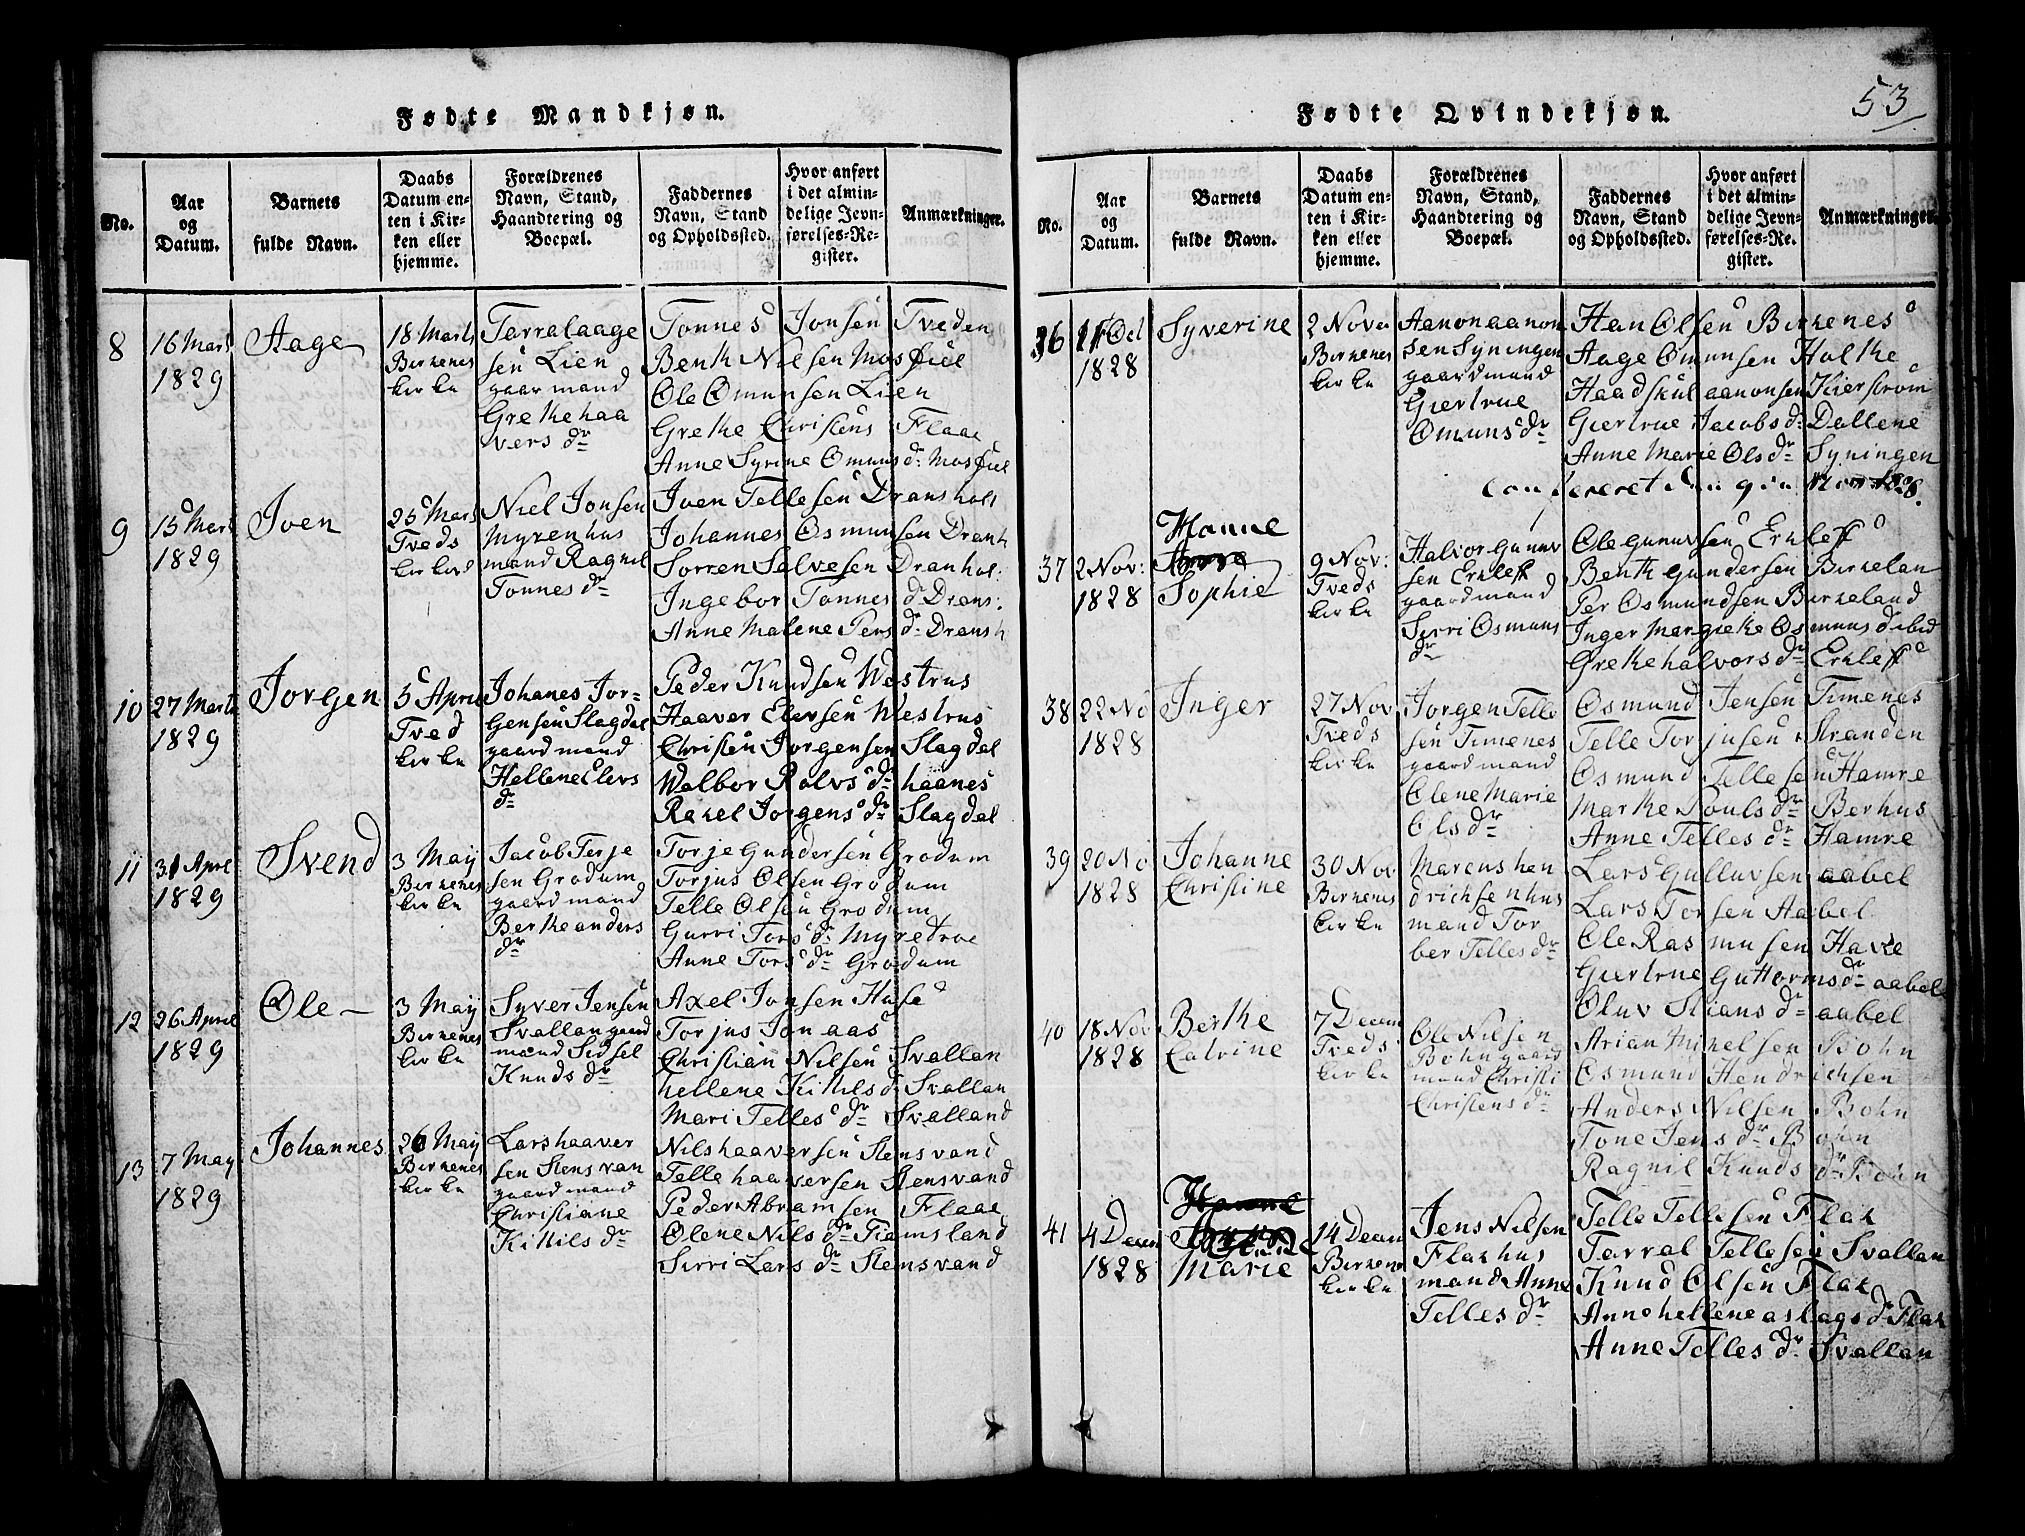 Fødte Mandkjøn.
No.
Aar og Datum.
Barnets fulde Navn.
Daabs Datum enten i Kirken eller hjemme.
Forældrenes Navn, Stand, Haandtering og Boepæl.
Faddernes Navn, Stand og Opholdssted.
Hvor anført i det almindelige Jevnførelses-Register.
Anmærkninger.
8
16 Mars
1829
Aage
18 Marts
Birkenes
kirke
Tarralaage
sen Lien
gaarmand
Grethe haa
vers dr
Tonnes Jonsen Tveden
Benth Nilsen Mosfiel
Ole Omunsen Lien
Grethe Christens Flaae
Anne Syrine Omuns dr Mosfiel
9
15 Mars
1829
Iven
25 Mars
Tveds
kirke
Niel Jonsen
Myren hus
mand Ragnil
Tonnes dr
Iven Tellesen Dransholt
Johannes Osmunsen Dranh
Sørren Salvesen Dranhol:
Ingebor Tonnes dr Drans:
Anne Malene Pers dr Dransh
10
27 Marts
1829
Jorgen
5 April
Tved
kirke
Johanes Jor-
gensen Slagdal
gaard mand
Hellene Elevs
dr
Peder Knudsen Westrus
Haaver Elevsen Westrus
Christen Jorgensen Slagdal
Walbor Rolvs dr haanes
Rakel Jorgens dr Slagdal
11
31 April
1829
Svend
3 May
Birkenes
kirke
Jacob Terje
sen Grodum
gaard mand
Berthe anders
dr
Torje Gundersen Grodum
Torjus Olsen Grodum
Telle Olsen Grodum
Gurri Tors dr Myretroe
Anne Tors dr Grodum
12
26 April
1829
Ole
3 May
Birkenes
kirke
Syver Jensen
Svallan gaard
mand Sidsel
Knuds dr
Axel Jonsen Huse
Torjus Jon aas
Christian Nilsen Svallan
hellene Kittils d Svallan
Mari Telles dr Svalland
13
7 May
1829
Johannes
26 May
Birkenes
kirke
Lars haaver
sen Stensvan
gaard mand
Christiane
Kittils dr
Nils haaversen Stensvand
Telle haaversen Stensvand
Peder Abramsen Flaae
Olene Nils dr Tiamsland
Sirri Lars dr Stensvand
53
Fødte Qvindekjøn.
No.
Aar og Datum.
Barnets fulde Navn.
Daabs Datum enten i Kirken eller hjemme.
Forældrenes Navn, Stand, Haandtering og Boepæl.
Faddernes Navn, Stand og Opholdssted.
Hvor anført i det almindelige Jevnførelses-Register.
Anmærkninger.
36
1828
Syverine
2 Nove
Birkenes
kirke
Aanon aanon
sen Syningen
gaardmand
Giertrue
Omuns dr
Han Olsen Birkenes
Aage Omunsen Holthe
Haadskul aanonsen Kierstrøm
Giertrue Jacobs dr Dallene
Anne Marie Ols dr Syningen
37
2 Nov:
1828
Hanne
Sophie
9 Nov:
Tveds
kirke
Halvor Gunuv
sen Erkleff
gaardmand
Sirri Osmuns
dr
Ole Gunuvsen Erkleff
Benth Gundersen Birkelan
Per Osmundsen Birkeland
Inger Margrethe Osmuns d ibid
Grethe halvors dr Erkleff
38
22 No
1828
Inger
27 Nov
Tveds
kirke
Jorgen Telle
sen Timenes
gaardmand
Olene Marie
Ols dr
Osmund Jensen Timenes
Telle Torjusen Stranden
Osmund Tellesen Hamre
Marthe Pouls dr Berhus
Anne Telles dr Hamre
39
20 No
1828
Johanne
Christine
30 Nov
Birkenes
kirke
Marcus hen
drichsen hus
mand Tor
ber Telles dr
Lars Gulluvsen aabel
Lars Torsen Aabel
Ole Rasmusen Have
Giertrue Guttorms dr aabel
Oluv Stians dr aabel
40
18 Nov
1828
Berthe
Catrine
7 Decem
Tveds
kirke
Ole Nilsen
Bohn gaard
mand Christi
Christens dr
Arian Mikelsen Bohn
Osmund Hendrichsen
Anders Nilsen Bohn
Tone Jens dr Boin
Ragnil Knuds dr Boin
41
4 Decem
1828
Marie
14 Decem
Birkenes
kirke
Jens Nilsen
Flak hus
mand Anne
Telles dr
Telle Tellesen Flak
Tarral Tellesen Svallan
Knud Olsen Flak
Anne hellene aslags dr Flak
Anne Telles dr Svallan